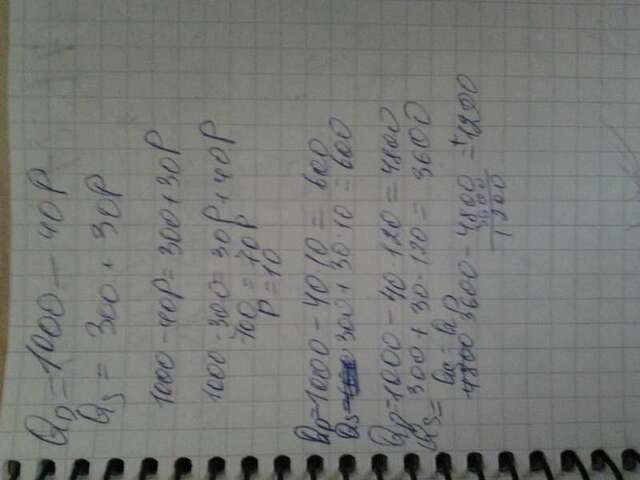 Qp = 1000 - 40P
Qs = 300 + 30P
1000 - 40P = 300 + 30P
1000 - 300 = 30P + 40P
700 = 70P
P = 10
Qp = 1000 - 40·10 = 600
Qs = 300 + 30·10 = 600
Qp = 1000 - 40·120 = 4800
Qs = 300 + 30·120 = 3600
3600 - 4800 = 1200
4800
3600
1200